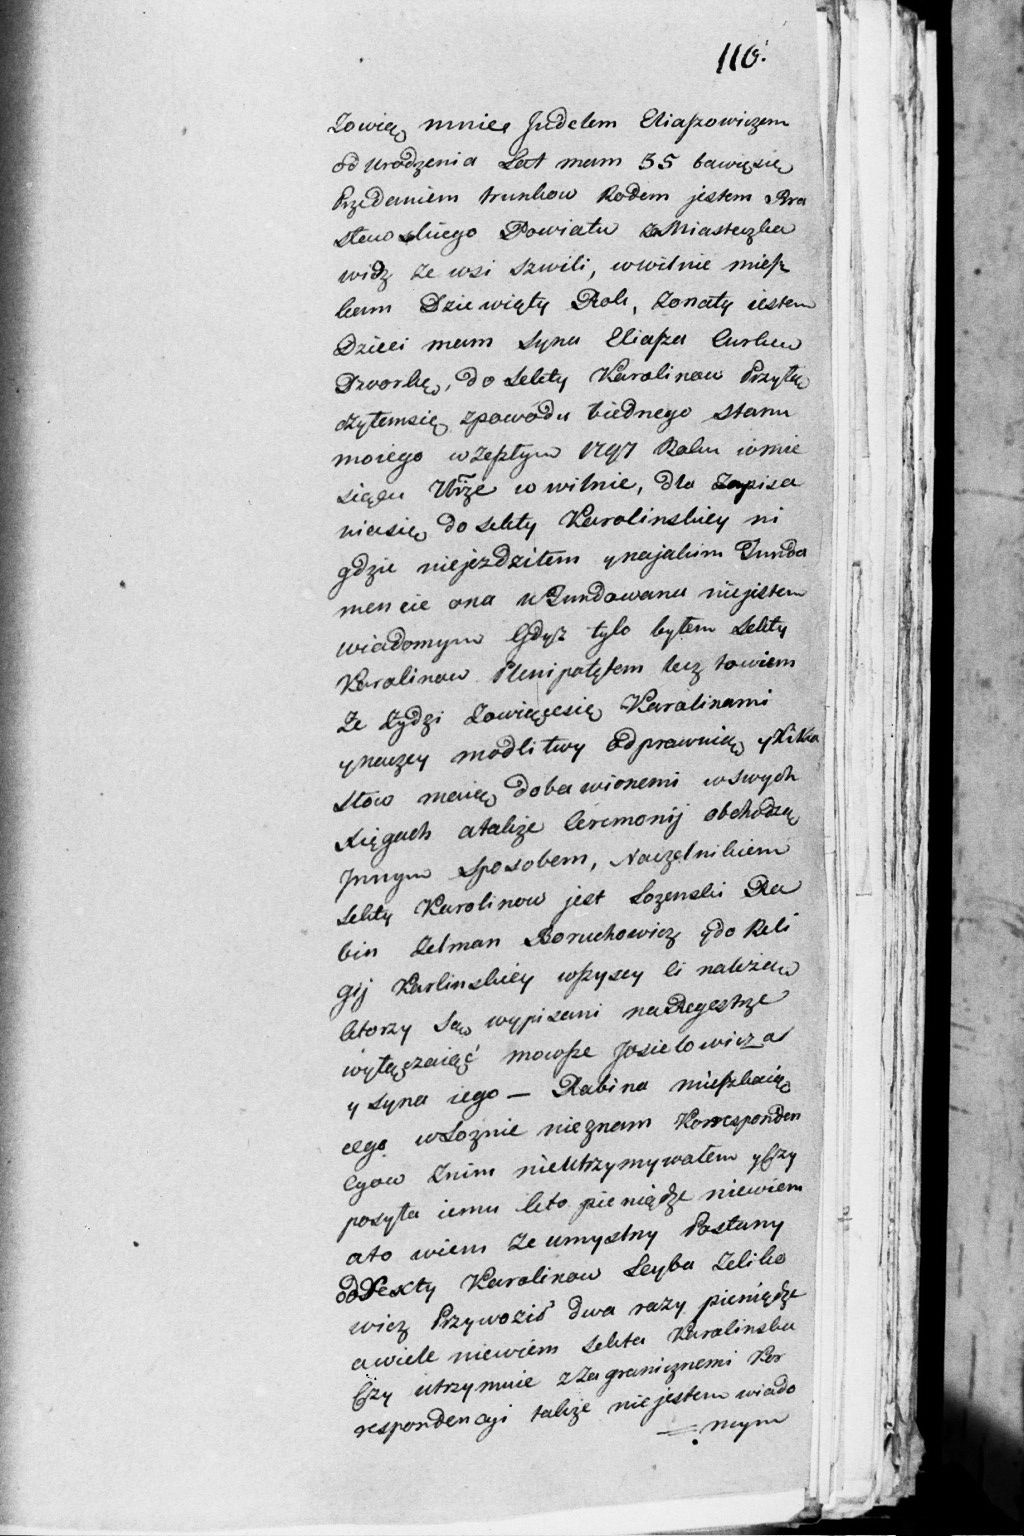 110.
Zowią mnie Judelem Eliaszowiczem
od urodzenia Lat mam 35 bawię się
Przedaniem trunkow Rodem jestem Bra
sławskiego Powiatu z Miasteczka
widz ze wsi Szwili, w wilnie miesz
kam Dziewiąty Rok, Zonaty iestem
Dzieci mam Syna Eliasza Curkę
Dworkę, do Sekty Karolinow Przyłą
czyłem się z powodu biednego stanu
moiego w Zeszłym 1797 Roku w mie
siącu Wrze w wilnie, dla Zapisa
nia się do Sekty Karolinskiey ni
gdzie niejezdziłem y na jakim Funda
mencie ona uFundowana niejestem
wiadomym Gdysz tylo byłem Sekty
Karolinow Plenipotętem lecz to wiem
Ze Żydzi Zowiące się Karolinami
ynaczey modlitwy odprawuią y Kilka
Słow maią dobawionemi w swych
Xięgach a także Ceremonij obchodzą
Jnnym Sposobem, Naczelnikiem
Sekty Karolinow jest Łozenski Ra
bin Zelman Boruchowicz y do Reli
gij Karlinskiey wszyscy Ci należą
ktorzy są wypisani na Regestrze
wyłączaiąć mowsze Josielowicza
y syna iego — Rabina mieszkaią
cego w Łoznie nieznam Korresponden
cyow Znim nieutrzymywałem y Czy
posyła iemu kto pieniądze niewiem
a to wiem Ze umyslny Posłany
od Sekty Karolinow Leyba Zeliko
wicz Przywoził dwa razy pieniądze
a wiele niewiem Sekta Karolinska
Czy utrzymuie z Zagranicznemi Kor
respondencyi także niejestem wiado
mym